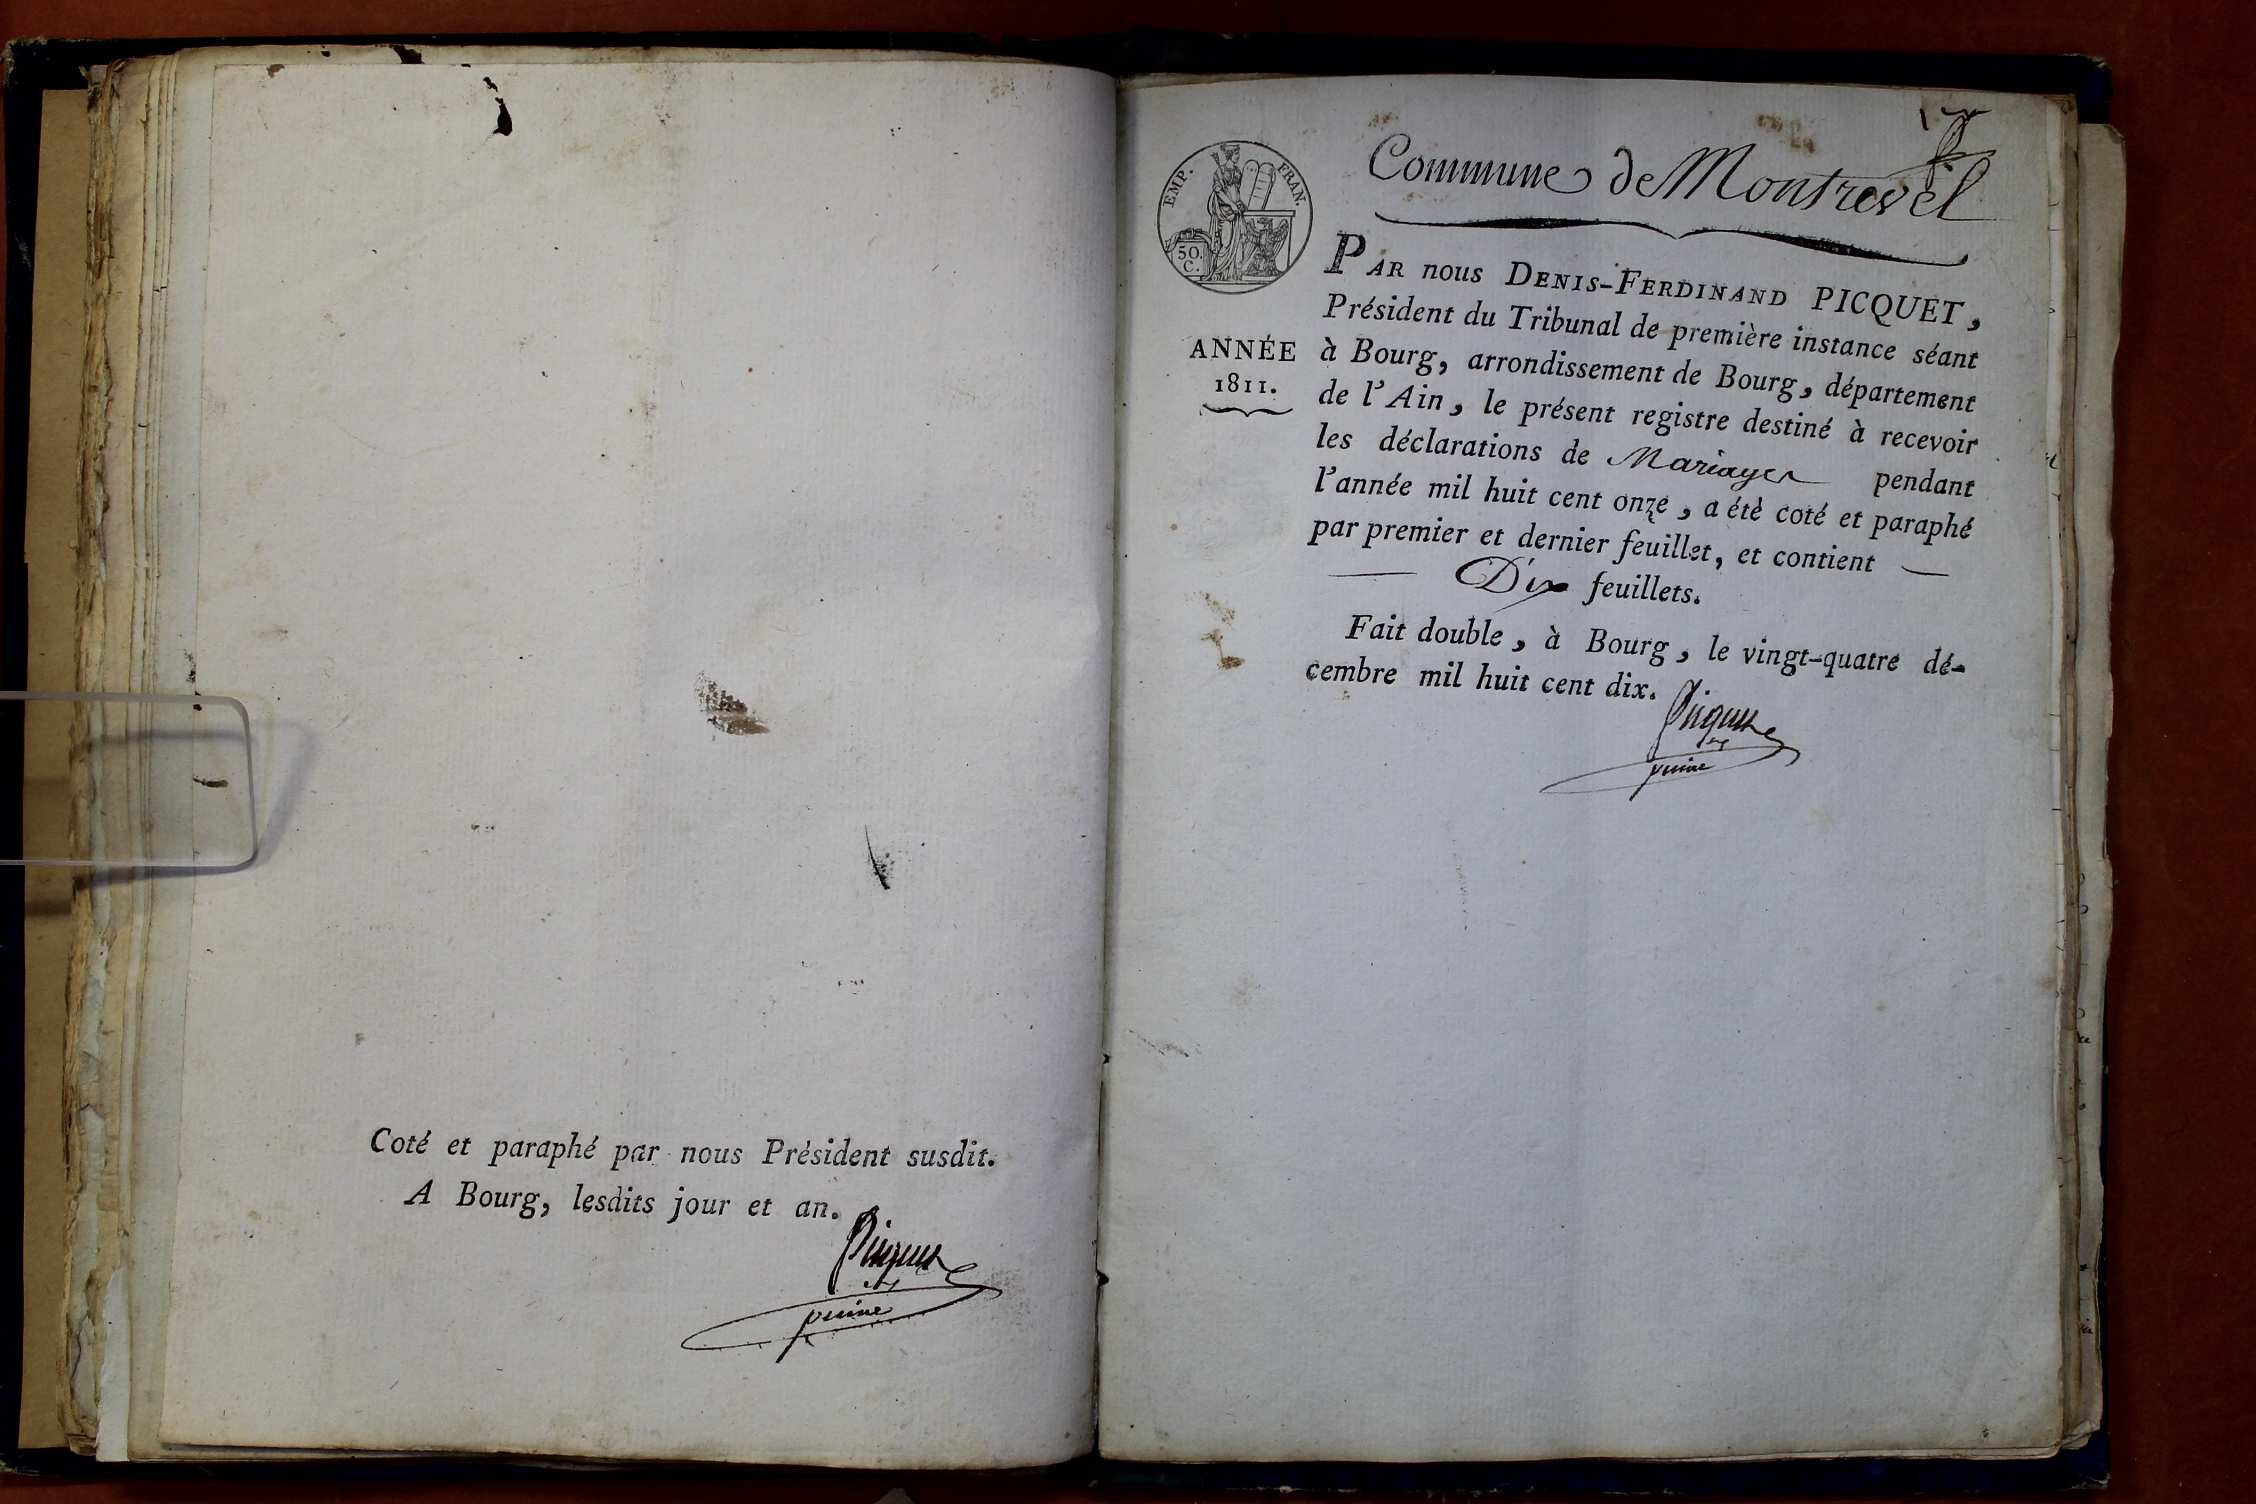 Coté et paraphé par nous Président susdit.
A Bourg, lesdits jour et an.
Picquet
EMP. FRAN.
50.
C.
Commune de Montrevel
ANNÉE
1811.
PAR nous DENIS-FERDINAND PICQUET,
Président du Tribunal de première instance séant
à Bourg, arrondissement de Bourg, département
de l'Ain, le présent registre destiné à recevoir
les déclarations de Mariages pendant
l'année mil huit cent onze, a étè coté et paraphé
par premier et dernier feuillet, et contient —
— Dix feuillets.
Fait double, à Bourg, le vingt-quatre dé-
cembre mil huit cent dix.
Picquet